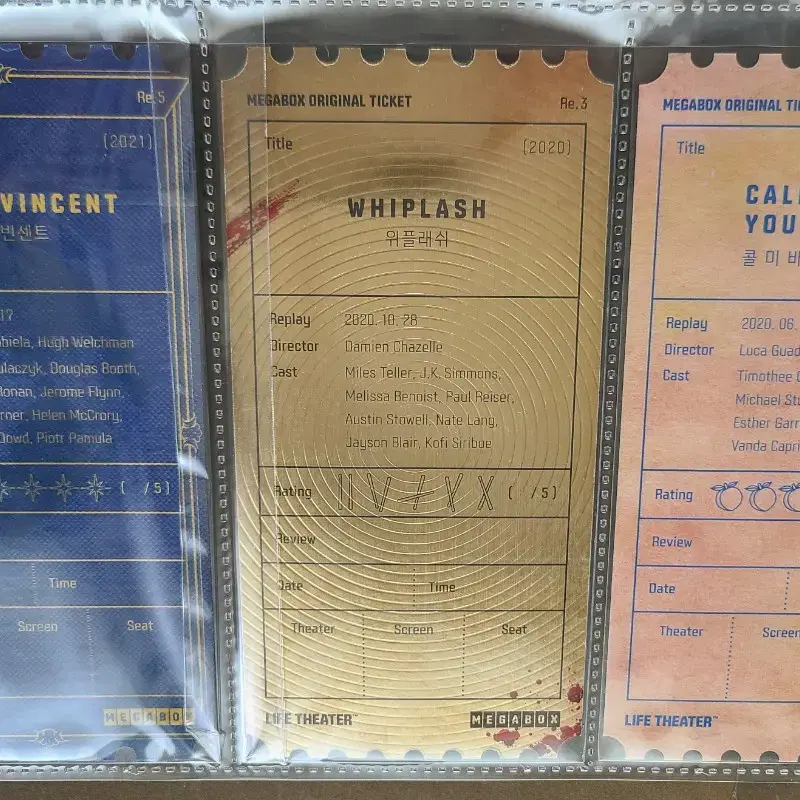 Re.5
(2021)
VINCENT
빈센트
17
biela, Hugh Welchman
ulaczyk, Douglas Booth,
Ronan, Jerome Flynn,
rner, Helen McCrory,
Dowd, Piotr Pamula
( /5)
Time
Screen
Seat
MEGABOX
MEGABOX ORIGINAL TICKET
Re.3
Title
(2020)
WHIPLASH
위플래쉬
Replay 2020. 10. 28
Director Damien Chazelle
Cast Miles Teller, J.K. Simmons,
Melissa Benoist, Paul Reiser,
Austin Stowell, Nate Lang,
Jayson Blair, Kofi Siriboe
Rating ( /5)
Review
Date Time
Theater Screen Seat
LIFE THEATER™
MEGABOX
MEGABOX ORIGINAL TI
Title
CALL
YOU
콜 미 바
Replay 2020. 06.
Director Luca Guad
Cast Timothee C
Michael Stu
Esther Garr
Vanda Capri
Rating
Review
Date
Theater Screen
LIFE THEATER™